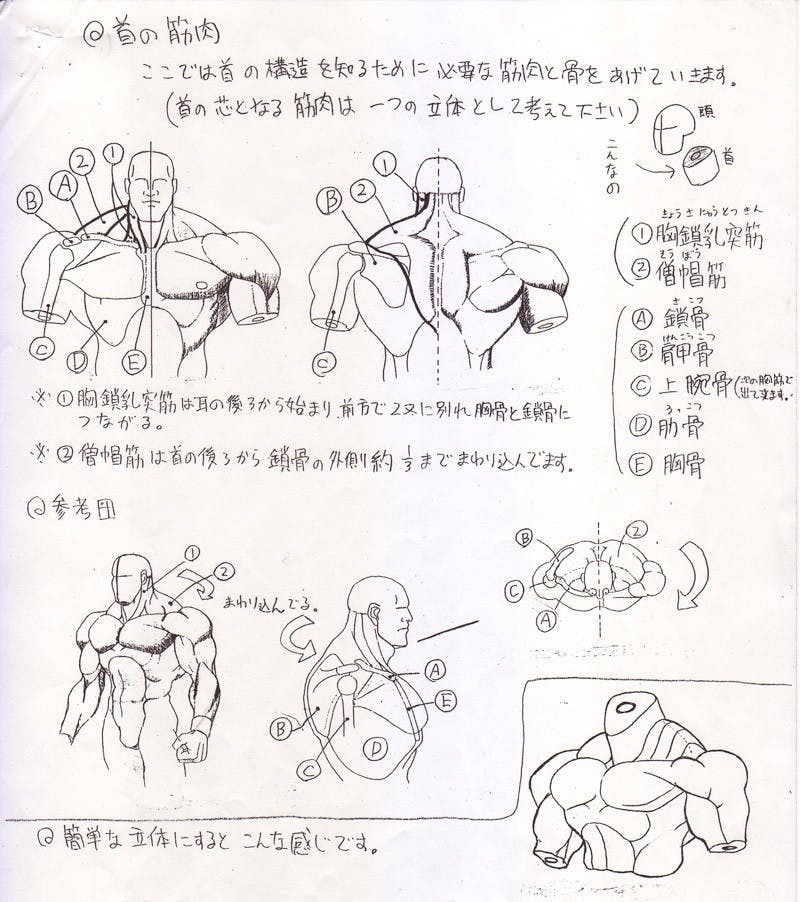 ◎首の筋肉
ここでは首の構造を知るために必要な筋肉と骨をあげていきます。
(首の芯となる筋肉は一つの立体として考えて下さい)
頭
首
こんなの
① ② Ⓐ Ⓑ Ⓒ Ⓓ Ⓔ
① ② Ⓑ Ⓒ
きょうさにゅうとつきん
①胸鎖乳突筋
そうぼう
②僧帽筋
さこつ
Ⓐ鎖骨
けんこうこつ
Ⓑ肩甲骨
Ⓒ上腕骨(次の胸筋で出て来ます。)
ろっこつ
Ⓓ肋骨
Ⓔ胸骨
※①胸鎖乳突筋は耳の後ろから始まり、前方で2又に別れ胸骨と鎖骨に
つながる。
※②僧帽筋は首の後ろから鎖骨の外側約1/3までまわり込んでます。
◎参考図
① ②
まわり込んでる。
Ⓐ Ⓔ Ⓑ Ⓒ Ⓓ
Ⓑ ② Ⓒ Ⓐ
◎簡単な立体にするとこんな感じです。